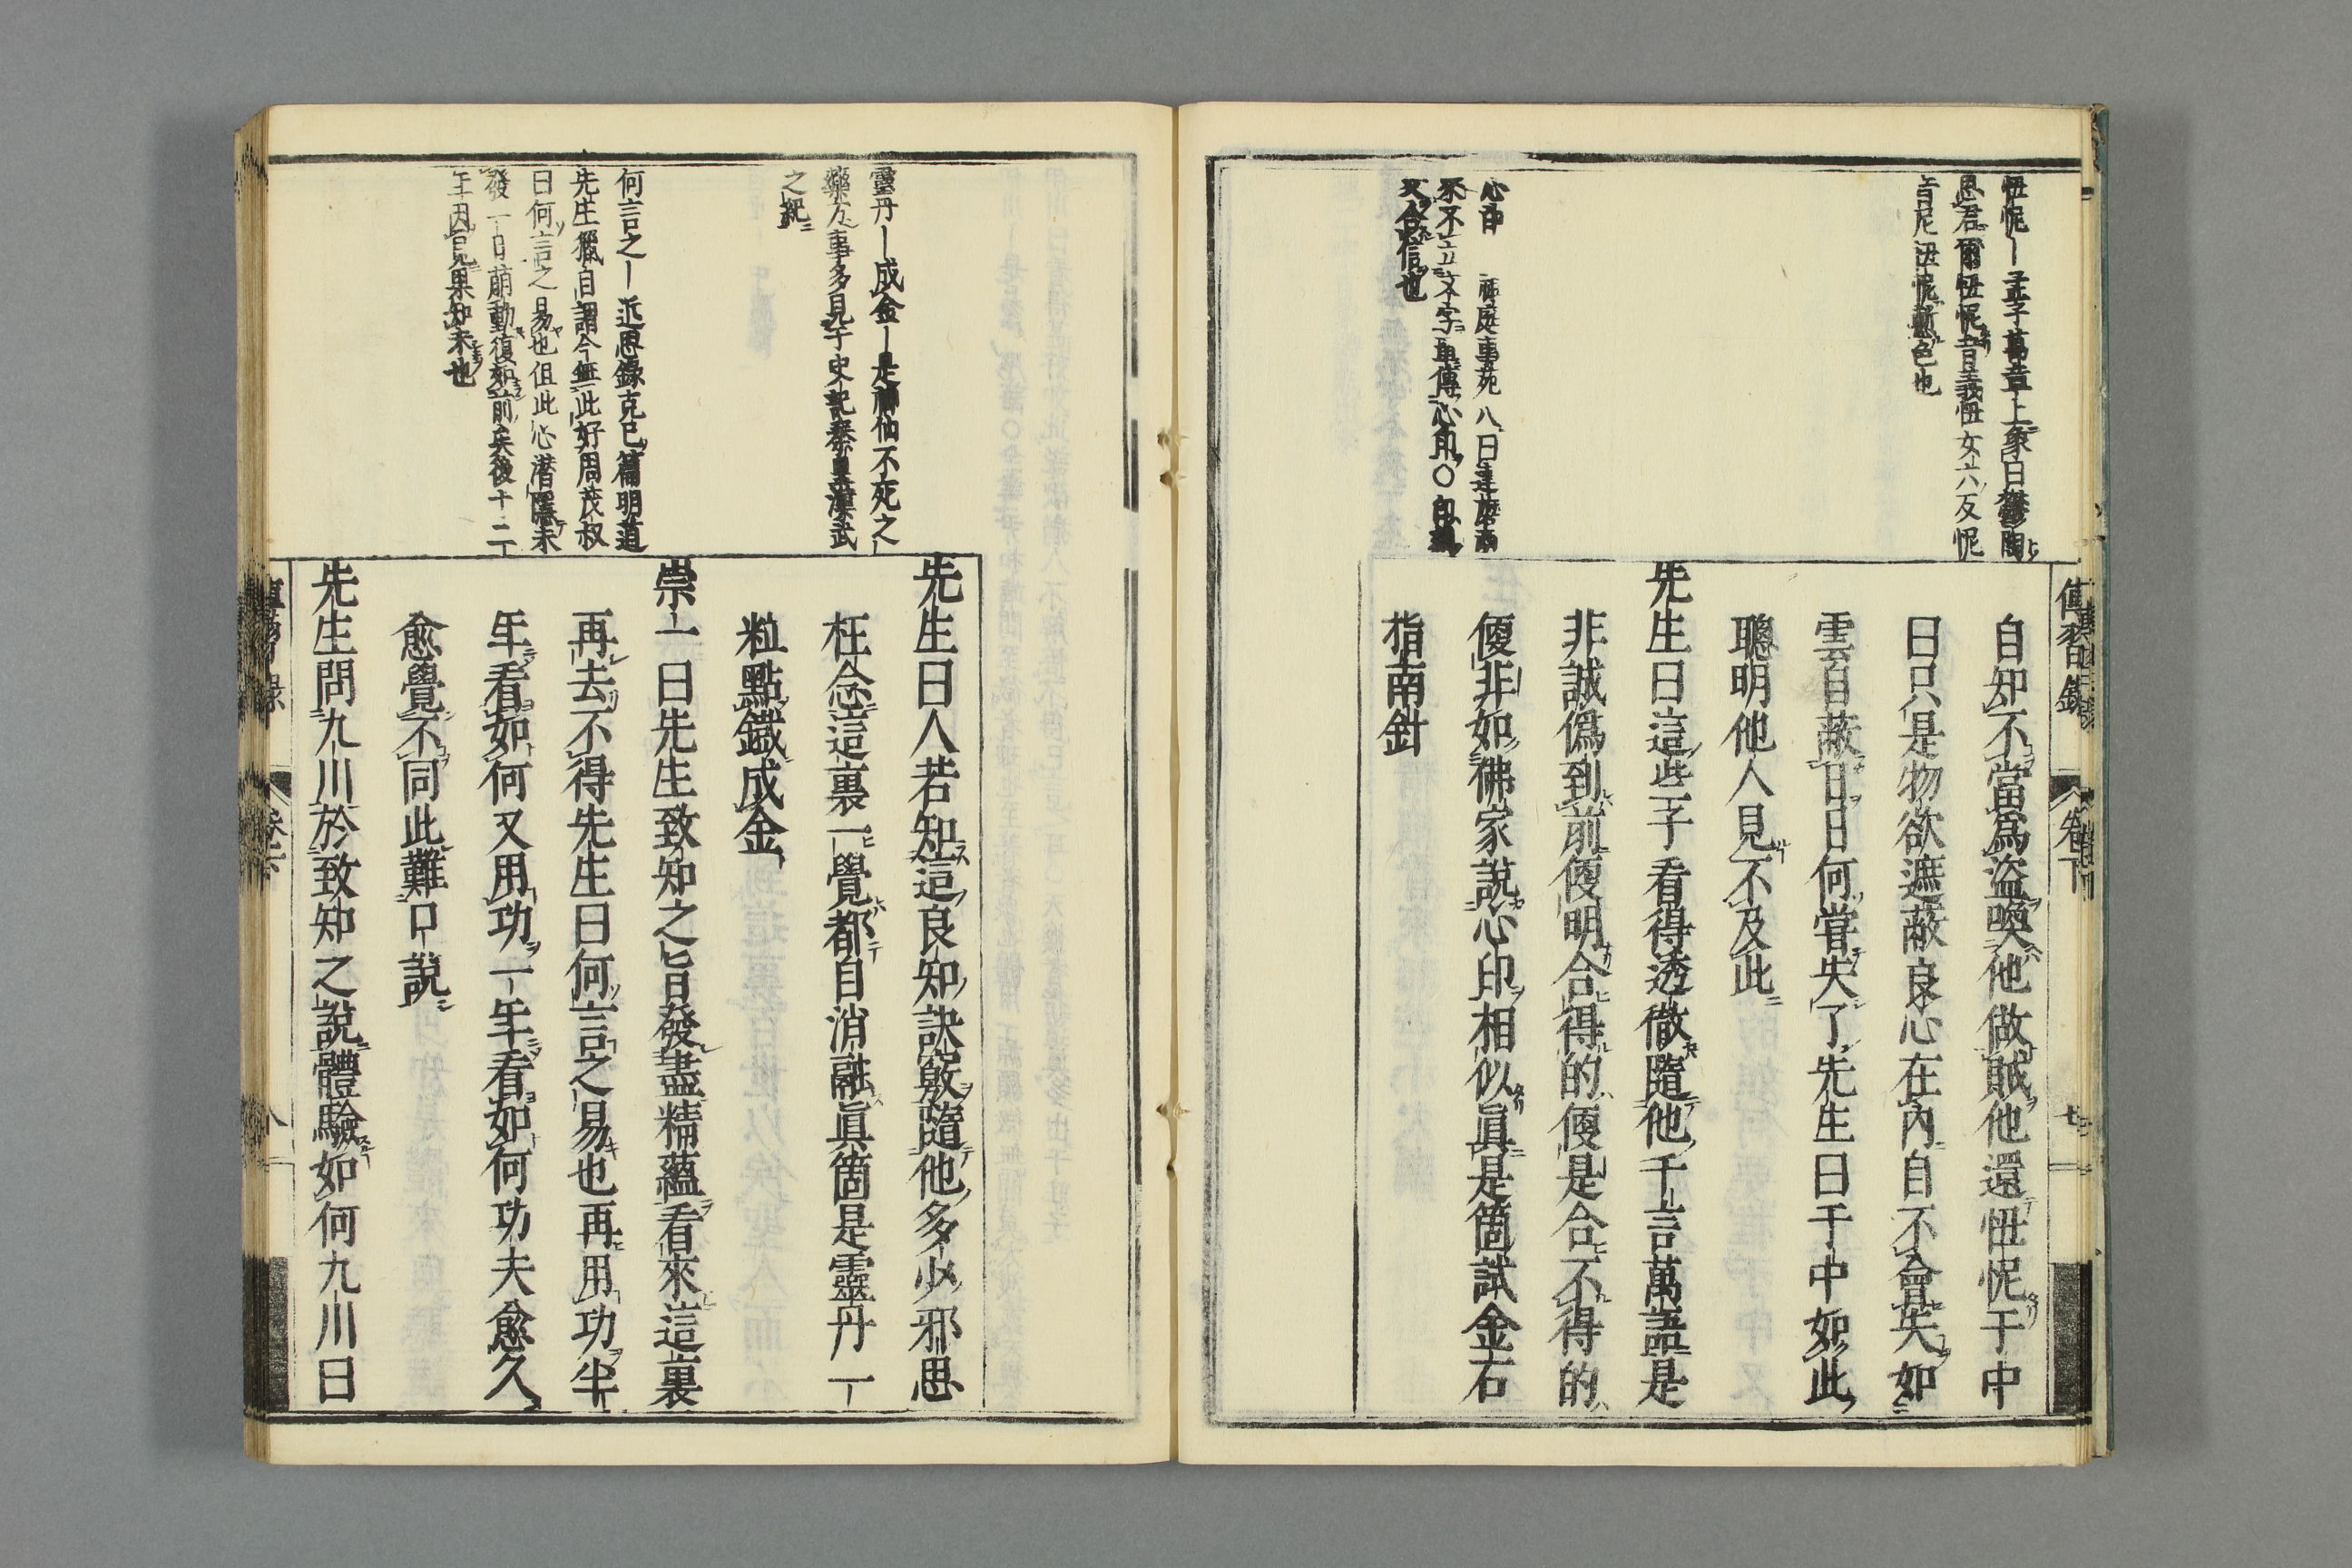 忸怩—孟子萬章上象曰鬱陶
思君爾忸怩音義忸女六反怩
音尼忸怩慙色也
心印 祖庭事苑八曰達磨西
來不立文字單傳心印
又合信也
傳習錄 卷下 七
自知不當爲盜喚他做賊他還忸怩于中
曰只是物欲遮蔽良心在內自不會失如
雲自蔽日日何嘗失了先生曰于中如此
聰明他人見不及此
先生曰這些子看得透徹隨他千言萬語是
非誠僞到前便明合得的便是合不得的
便非如佛家說心印相似眞是箇試金石
指南針
靈丹—成金—是神仙不死之
藥方事多見于史記秦皇漢武
之紀
何言之—近思錄克已篇明道
先生獵自謂今無此好周茂叔
曰何言之易也但此心潛隱未
發一日萠動復如前矣後十二
年因見果知未也
先生曰人若知這良知訣竅隨他多少邪思
枉念這裏一覺都自消融眞箇是靈丹一
粒點鐵成金
崇一曰先生致知之旨發盡精蘊看來這裏
再去不得先生曰何言之易也再用功半
年看如何又用功一年看如何功夫愈久
愈覺不同此難口說
先生問九川於致知之說體驗如何九川曰